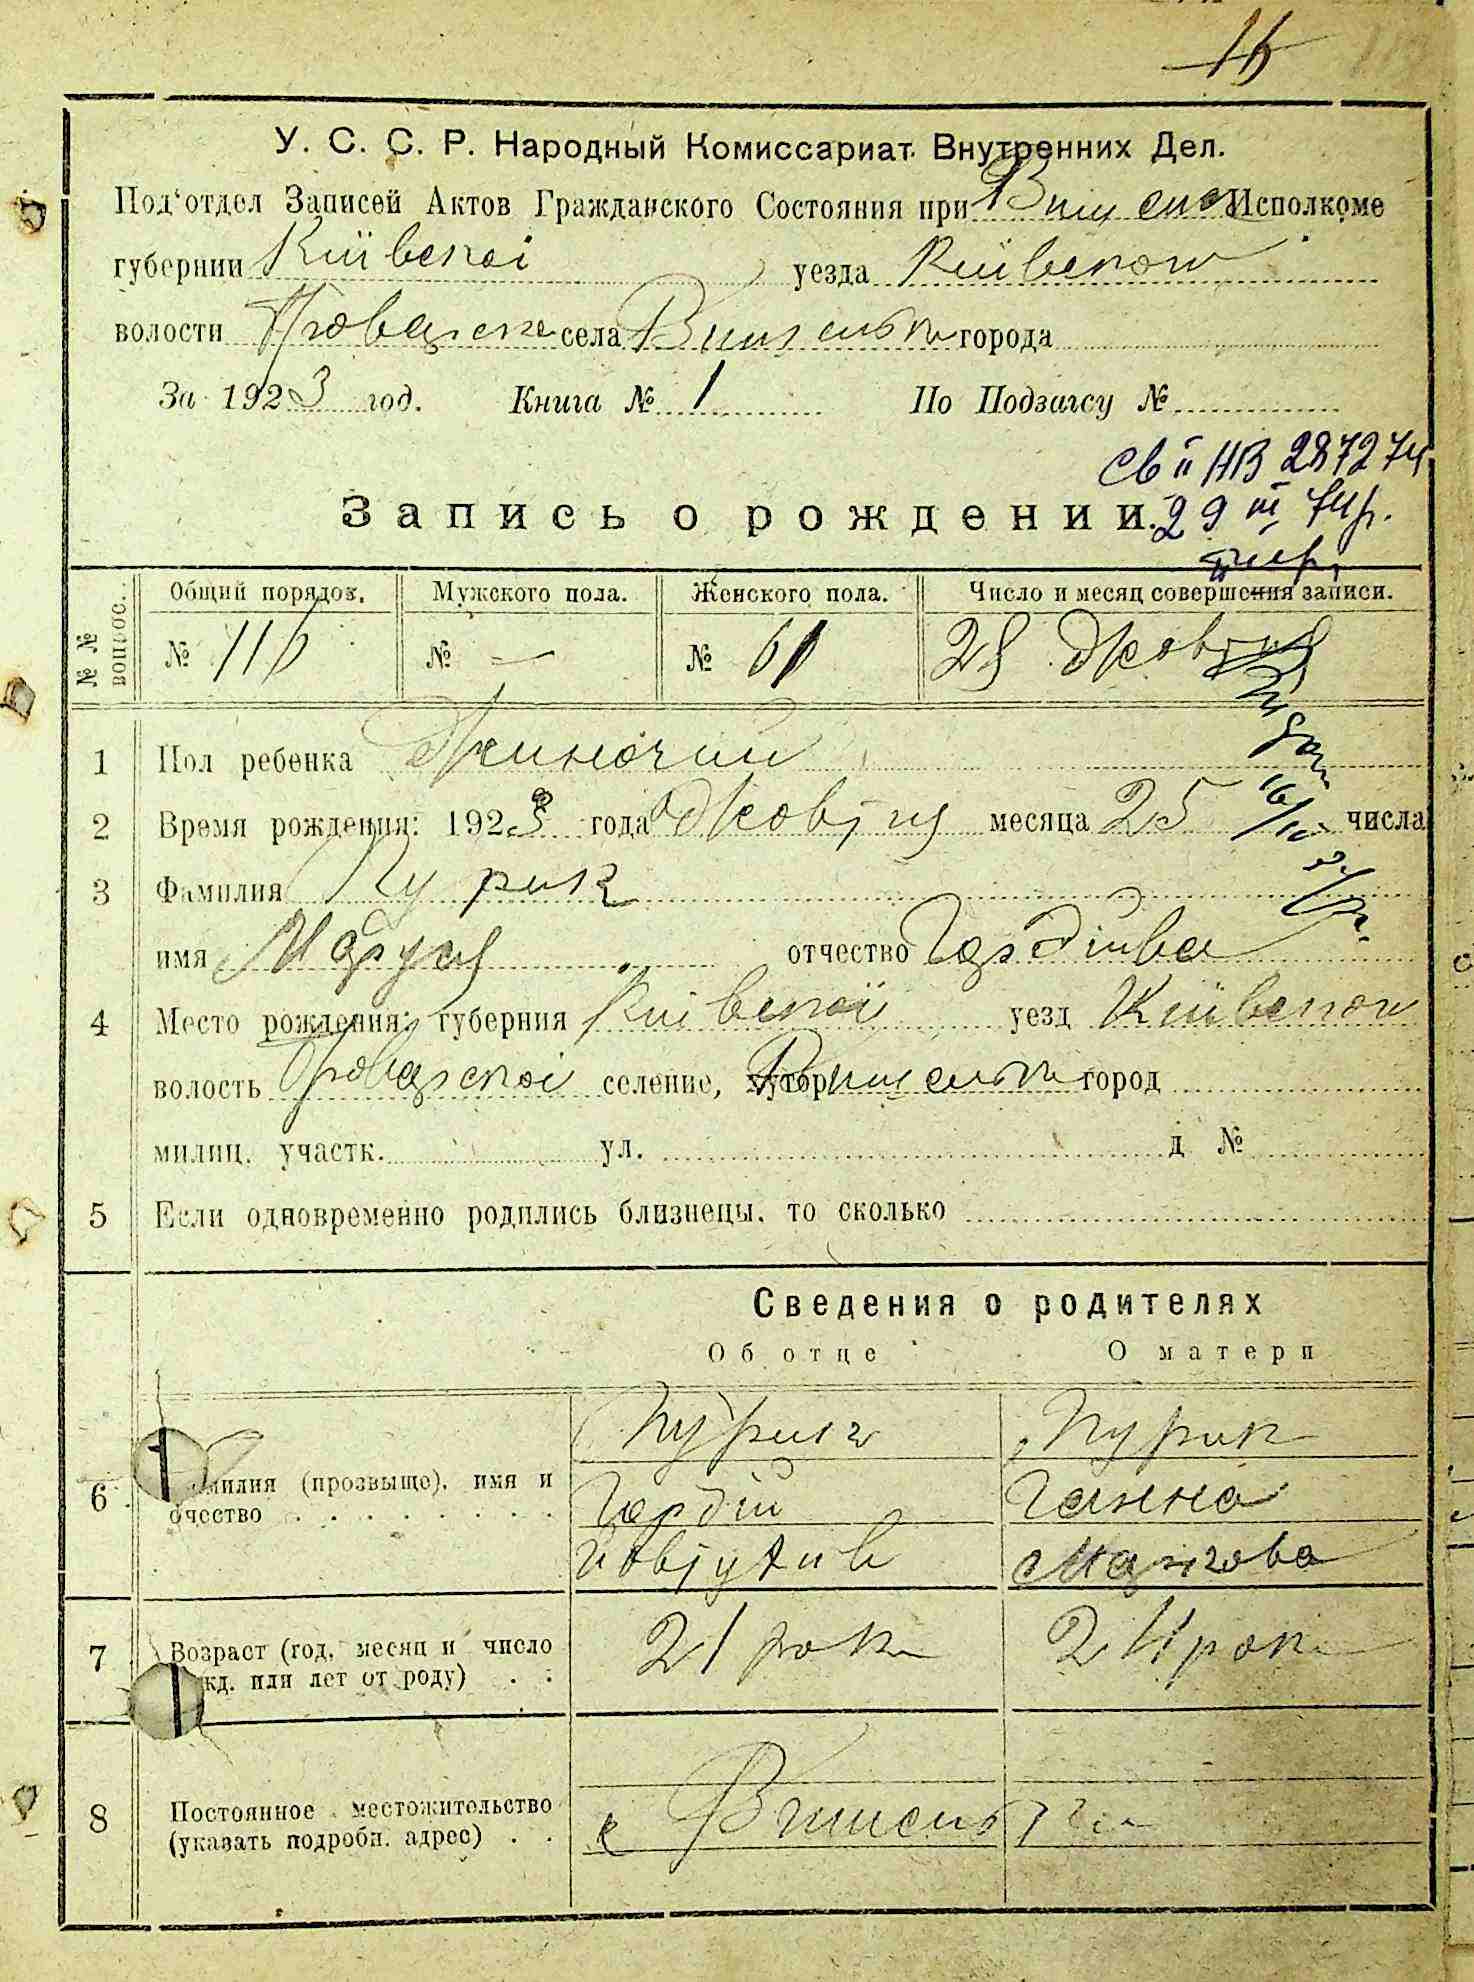 116
У. С. С. Р. Народный Комиссариат Внутренних Дел.
Под'отдел Записей Актов Гражданского Состояния при Вищенс Исполкоме
губернии Київскої уезда Київскои
волости села Вищеньки города
За 1923 год. Книга № 1 По Подзагсу №
св II НВ 287274
Запись о рождении. 29 III 74р.
№№ вопрос. Общий порядок. Мужского пола. Женского пола. Число и месяц совершения записи.
№ 116 № — № 61 28 Жовтня
1 Пол ребенка Жиночий
2 Время рождения: 1923 года Жовтня месяца 25 числа
3 Фамилия Пурик
имя Маруся отчество Гордіива
4 Место рождения: губерния Київскої уезд Київскои
волость селение, хутор Вищеньки город
милиц. участк. ул. д №
5 Если одновременно родились близнецы, то сколько
Сведения о родителях
Об отце О матери
Пурик Пурик
6 Фамилия (прозвыще), имя и Гордій Ганна
отчество Маркова
7 Возраст (год, месяц и число 21 рок 21 рок
рожд. или лет от роду)
8 Постоянное местожительство с Вишеньки
(указать подробн. адрес)